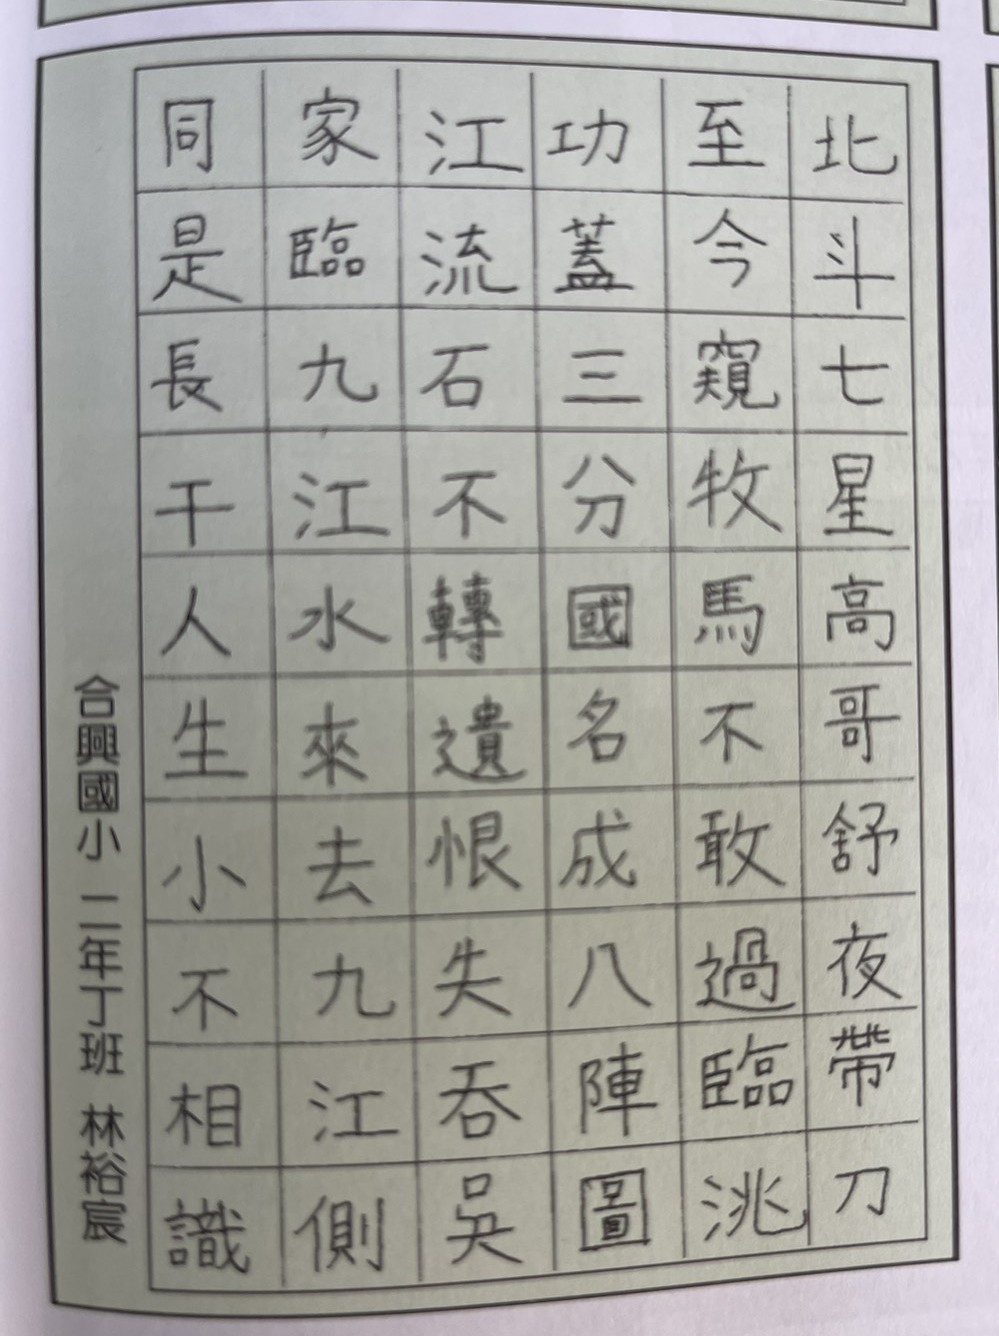 北斗七星高哥舒夜帶刀
至今窺牧馬不敢過臨洮
功蓋三分國名成八陣圖
江流石不轉遺恨失吞吳
家臨九江水來去九江側
同是長干人生小不相識
合興國小 二年丁班 林裕宸